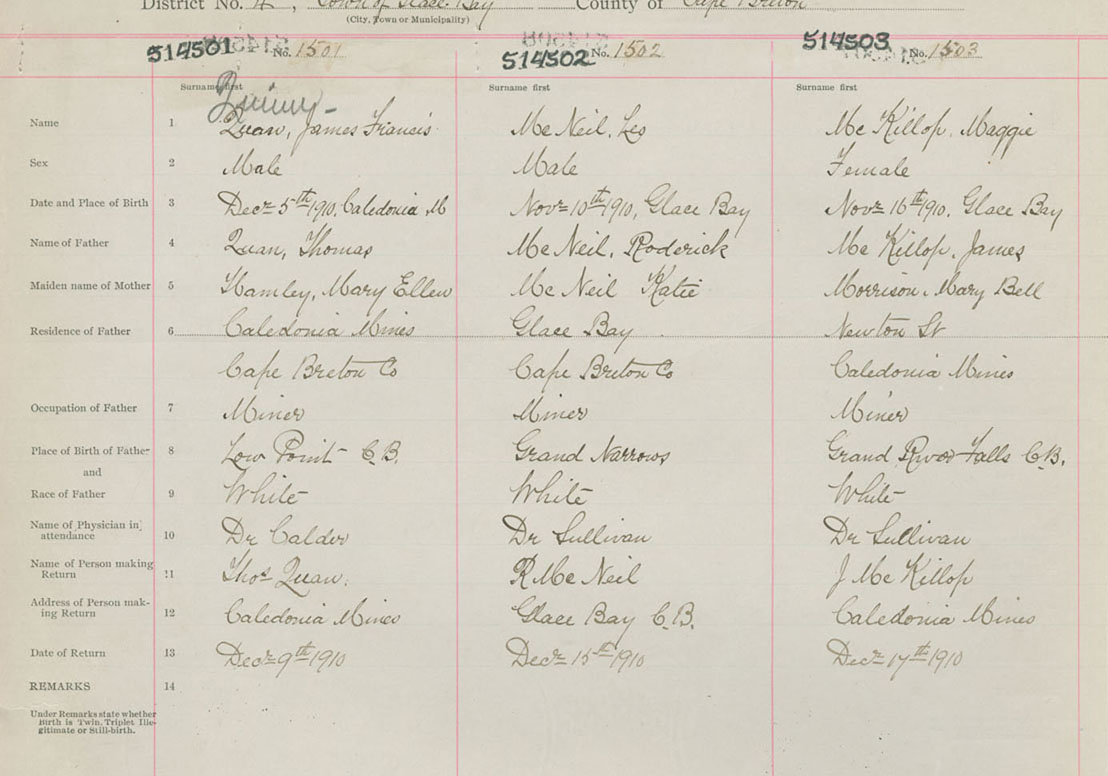 District No. 4, Town of Glace Bay County of Cape Breton
(City, Town or Municipality)
514501 No. 1501 514502 No. 1502 514503 No. 1503
Surname first Surname first Surname first
Name 1 Quan, James Francis Mc Neil, Les Mc Killop, Maggie
Sex 2 Male Male Female
Date and Place of Birth 3 Decr 5th 1910, Caledonia M Novr 10th 1910, Glace Bay Novr 16th 1910, Glace Bay
Name of Father 4 Quan, Thomas Mc Neil, Roderick Mc Killop, James
Maiden name of Mother 5 Hamley, Mary Ellen Mc Neil Katie Morrison, Mary Bell
Residence of Father 6 Caledonia Mines Glace Bay Newton St
Cape Breton Co Cape Breton Co Caledonia Mines
Occupation of Father 7 Miner Miner Miner
Place of Birth of Father 8 Low Point C.B. Grand Narrows Grand River Falls C.B.
and
Race of Father 9 White White White
Name of Physician in
attendance 10 Dr Calder Dr Sullivan Dr Sullivan
Name of Person making
Return 11 Thos Quan. R Mc Neil J Mc Killop
Address of Person mak-
ing Return 12 Caledonia Mines Glace Bay C.B. Caledonia Mines
Date of Return 13 Decr 9th 1910 Decr 15th 1910 Decr 17th 1910
REMARKS 14
Under Remarks state whether
Birth is Twin, Triplet, Ille-
gitimate or Still-birth.